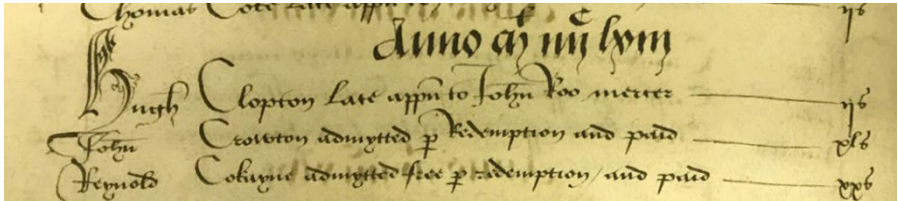 Thomas Cote late appñ
ijs
Anno m iiijc lxiij
Hugh Clopton late appñ to John Roo mercer ijs
John Crowton admytted p Redemption and paid xls
Reynold Cokayne admytted free p redemption / and paid xxs